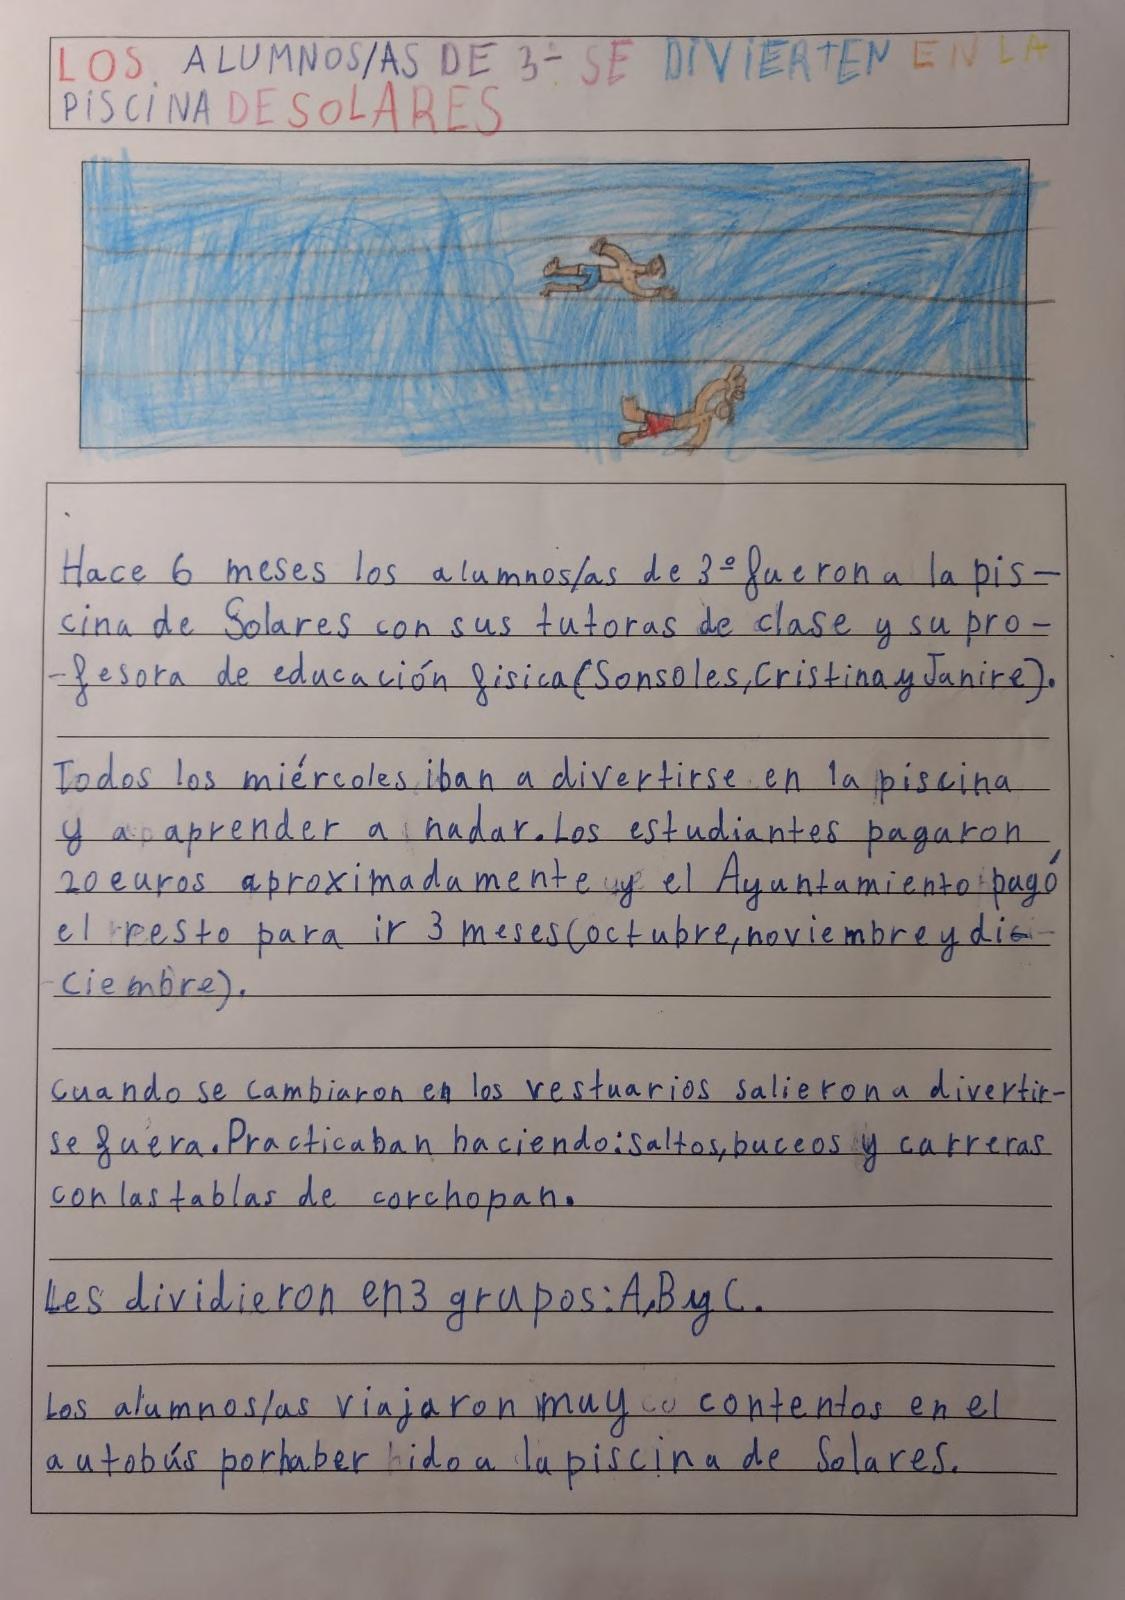 LOS ALUMNOS/AS DE 3º SE DIVIERTEN EN LA
PISCINA DE SOLARES
Hace 6 meses los alumnos/as de 3º fueron a la pis-
cina de Solares con sus tutoras de clase y su pro-
-fesora de educación fisica (Sonsoles, Cristina y Janire).
Todos los miércoles iban a divertirse en la piscina
y a aprender a nadar. Los estudiantes pagaron
20 euros aproximadamente y el Ayuntamiento pagó
el resto para ir 3 meses (octubre, noviembre y di-
-ciembre).
Cuando se cambiaron en los vestuarios salieron a divertir-
se fuera. Practicaban haciendo: saltos, buceos y carreras
con las tablas de corchopan.
Les dividieron en 3 grupos: A, B y C.
Los alumnos/as viajaron muy contentos en el
autobús por haber ido a la piscina de Solares.